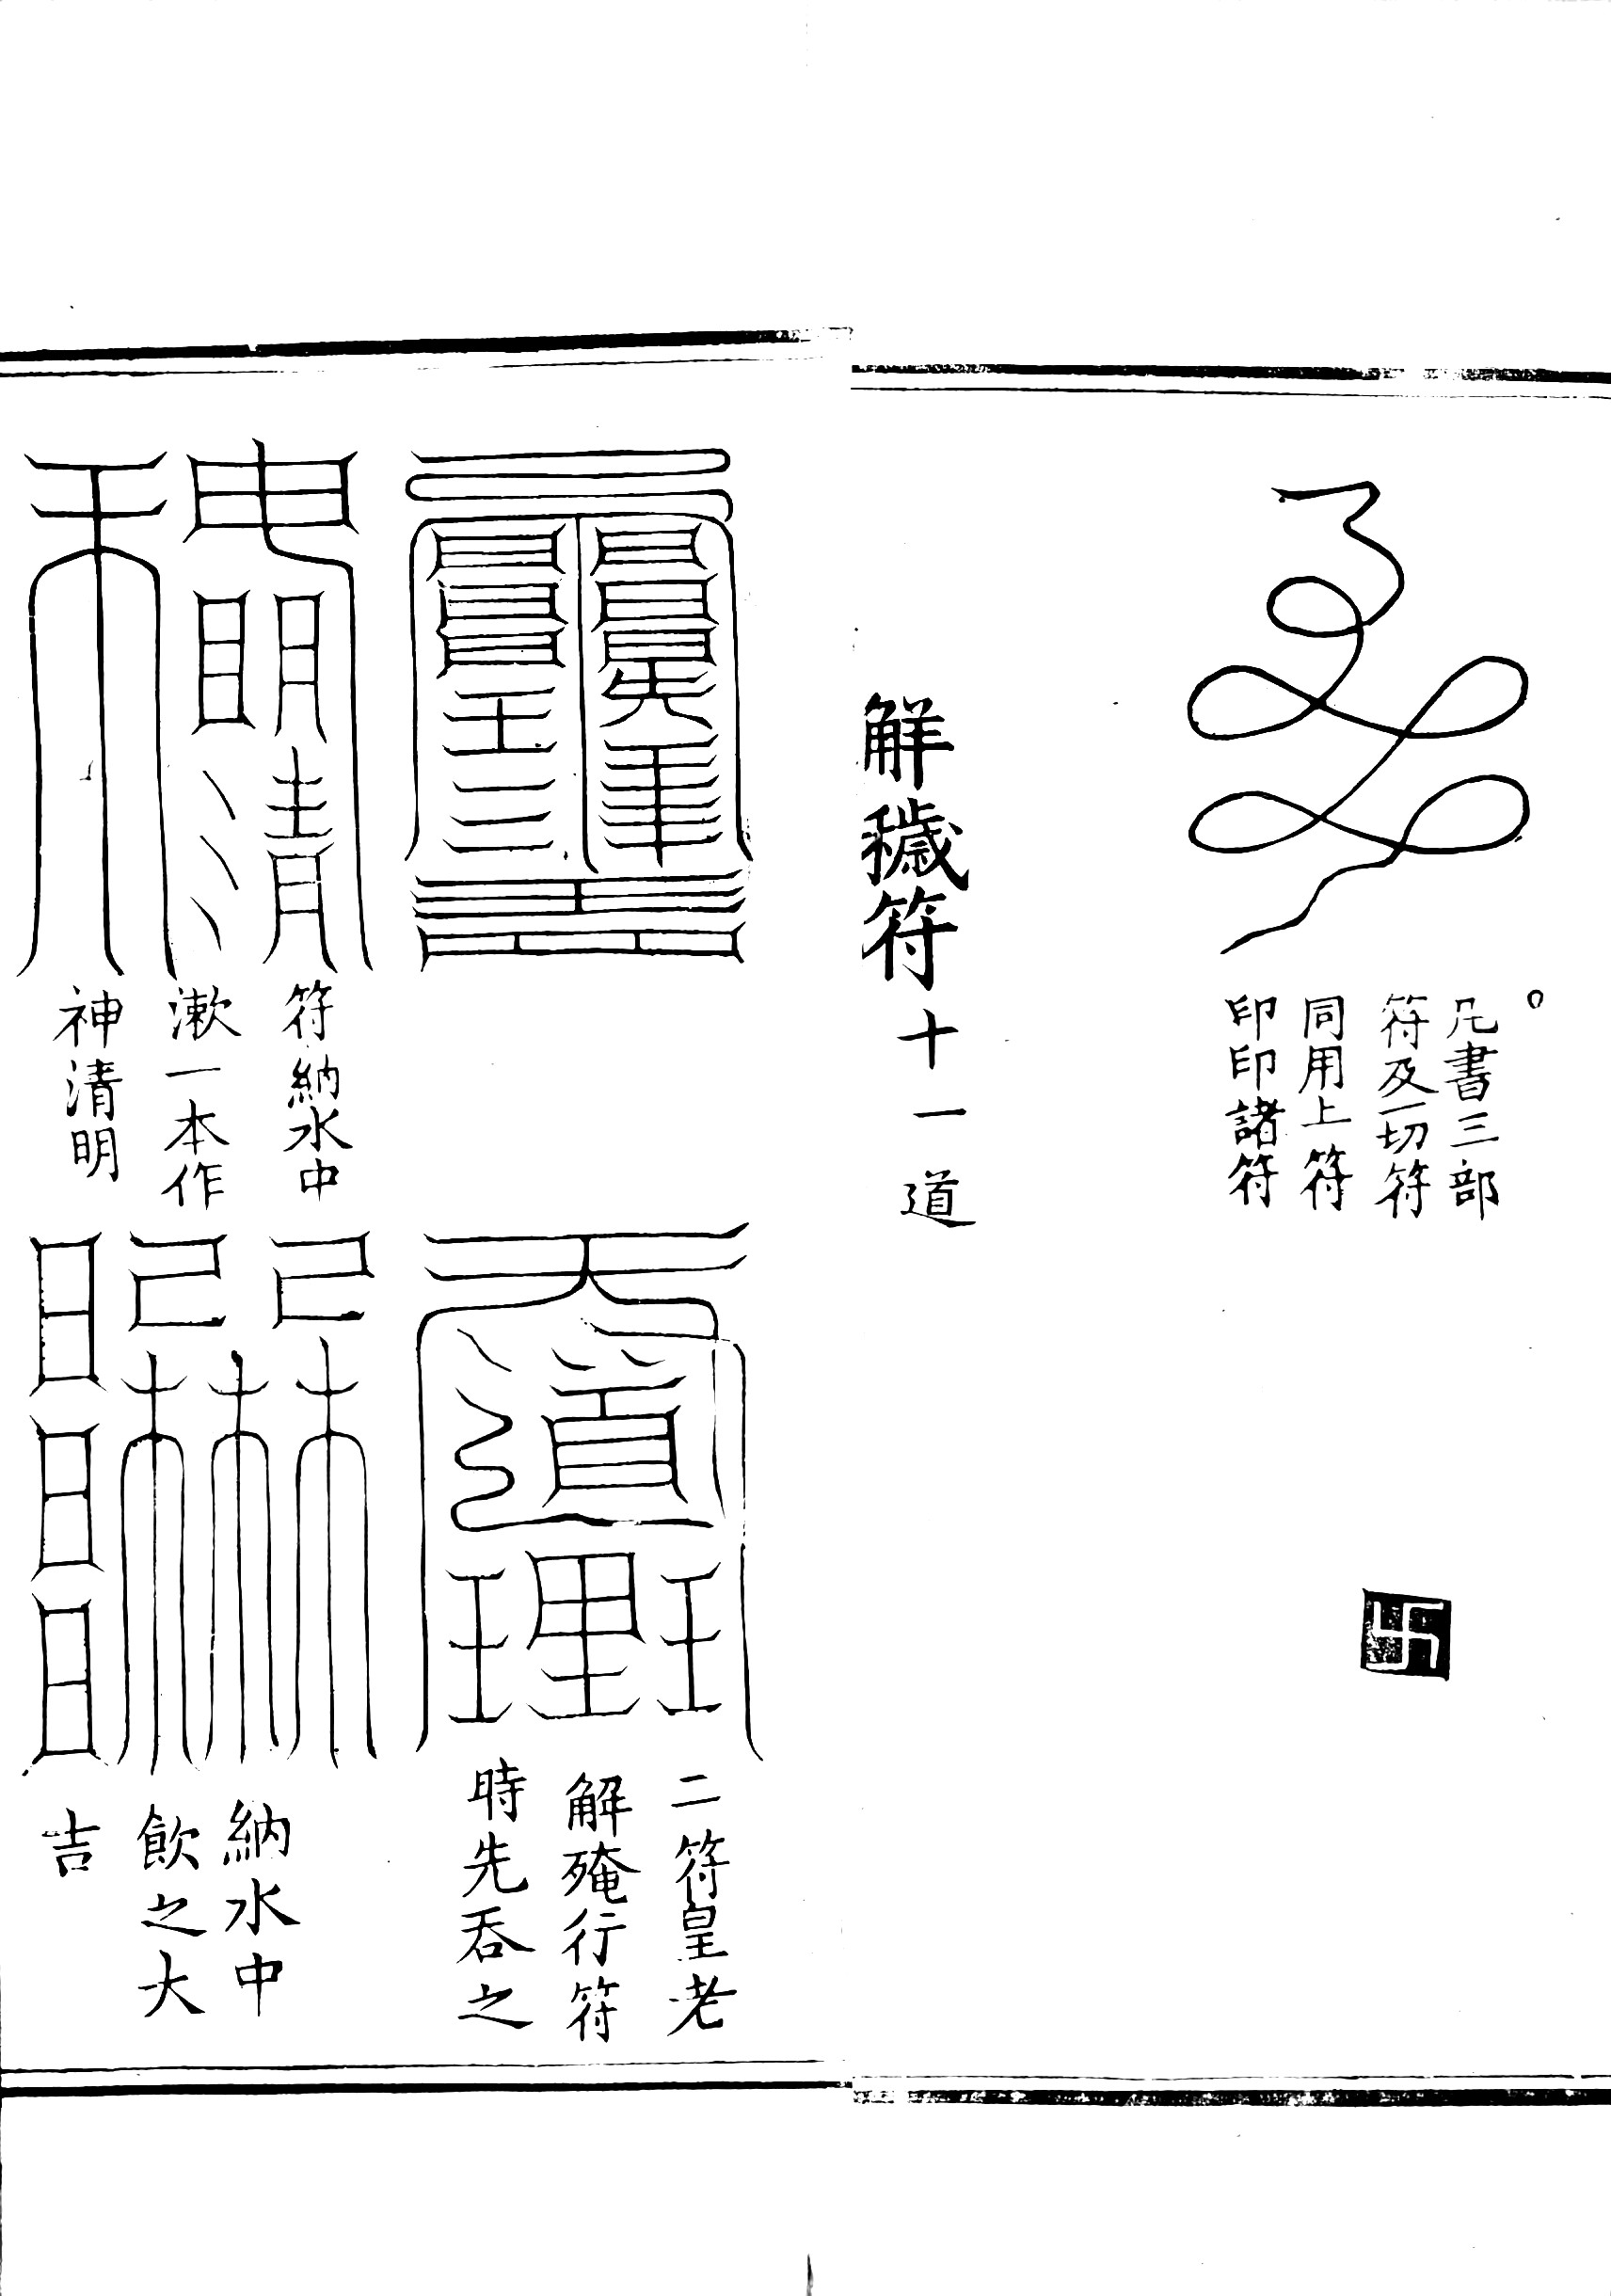 凡書三部
符及一切符
同用上符
印印諸符
卐
解穢符十一道
二符皇老
解殗行符
時先吞之
符納水中
漱一本作
神清明
納水中
飲之大
吉